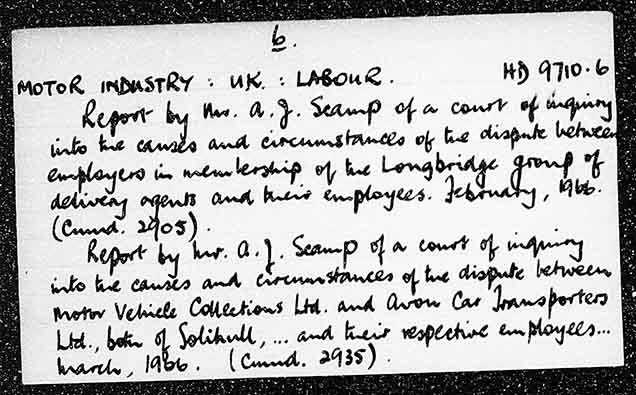 6.
MOTOR INDUSTRY : UK. : LABOUR. HD 9710.6
Report by Mr. A. J. Scamp of a court of inquiry
into the causes and circumstances of the dispute between
employers in membership of the Longbridge group of
delivery agents and their employees. February, 1966.
(Cmnd. 2905).
Report by Mr. A. J. Scamp of a court of inquiry
into the causes and circumstances of the dispute between
Motor Vehicle Collections Ltd. and Avon Car Transporters
Ltd., both of Solihull, ... and their respective employees...
March, 1966. (Cmnd. 2935).